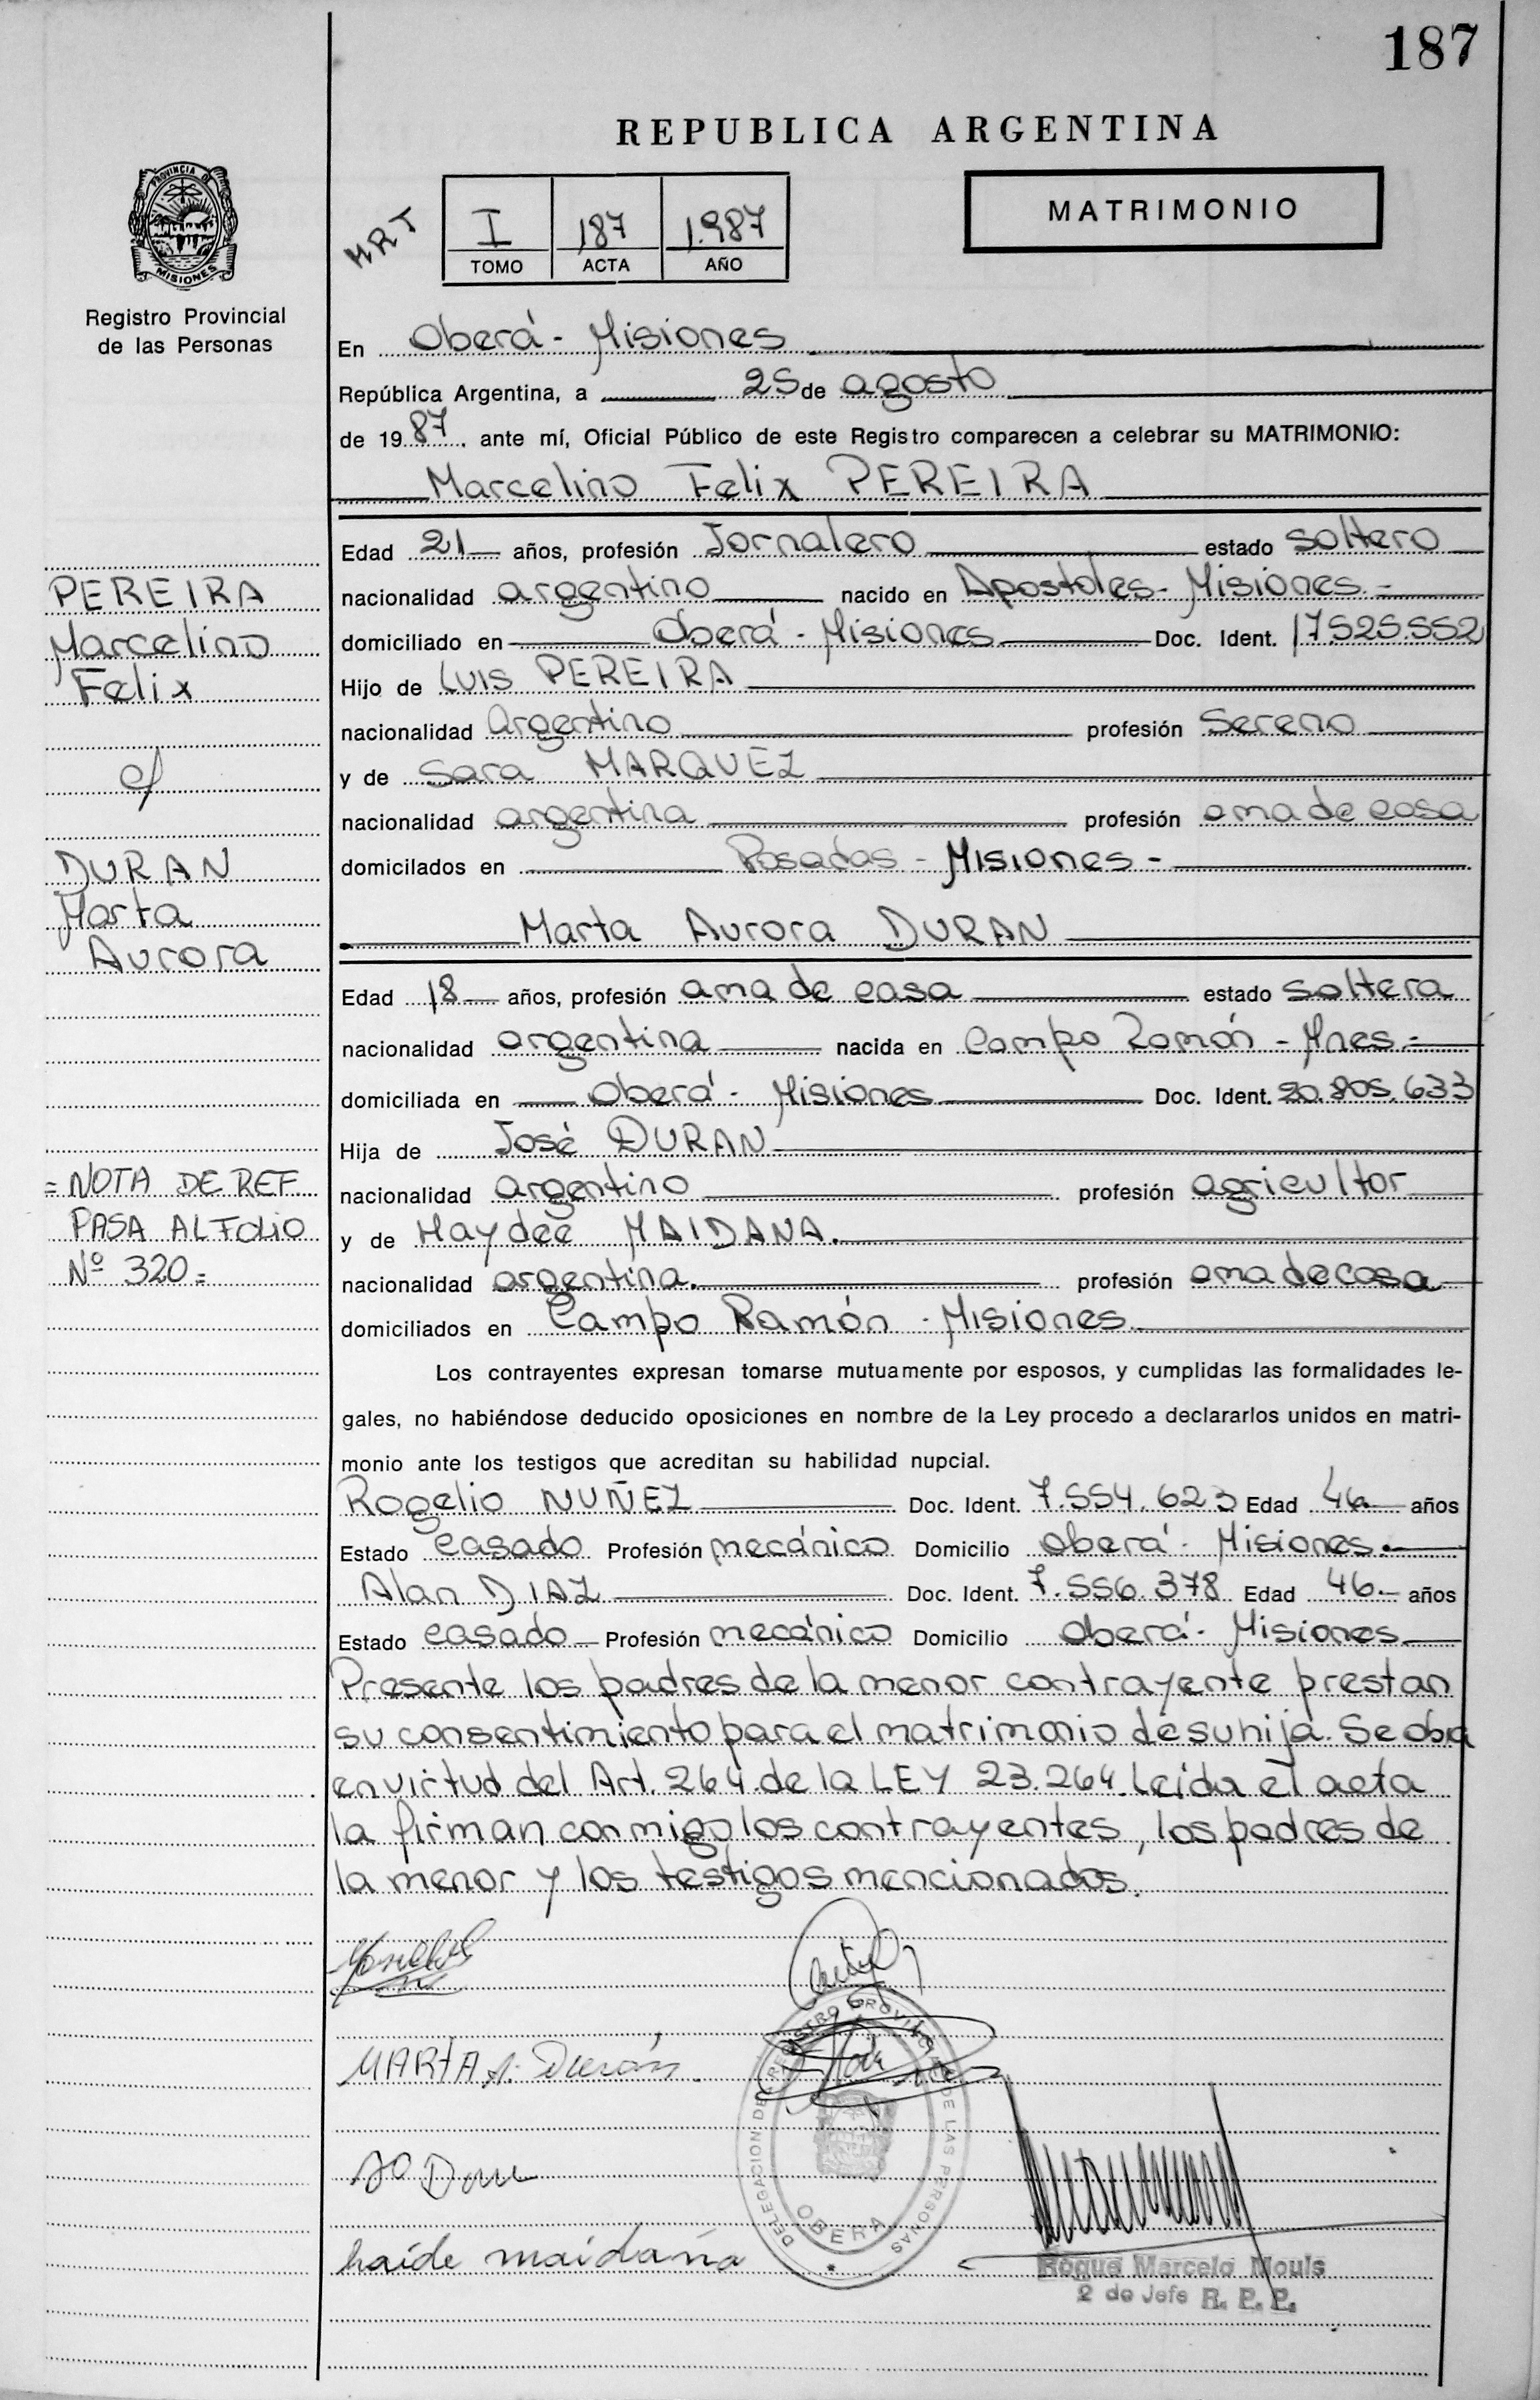 187
REPUBLICA ARGENTINA
PROVINCIA D
MISIONES
Registro Provincial
de las Personas
MRT
I 187 1.987
TOMO ACTA AÑO
MATRIMONIO
En Oberá - Misiones
República Argentina, a 25 de agosto
de 1987. ante mí, Oficial Público de este Registro comparecen a celebrar su MATRIMONIO:
Marcelino Felix PEREIRA
Edad 21 años, profesión Jornalero estado soltero
nacionalidad argentino nacido en Apostoles - Misiones -
domiciliado en Oberá - Misiones Doc. Ident. 17.525.552
Hijo de Luis PEREIRA
nacionalidad Argentino profesión Sereno
y de Sara MARQUEZ
nacionalidad argentina profesión ama de casa
domicilados en Posadas - Misiones -
Marta Aurora DURAN
Edad 18 años, profesión ama de casa estado soltera
nacionalidad argentina nacida en Campo Ramón - Mnes -
domiciliada en Oberá - Misiones Doc. Ident. 20.805.633
Hija de José DURAN
nacionalidad argentino profesión agricultor
y de Haydeé MAIDANA.
nacionalidad argentina. profesión ama de casa
domiciliados en Campo Ramón - Misiones
Los contrayentes expresan tomarse mutuamente por esposos, y cumplidas las formalidades le-
gales, no habiéndose deducido oposiciones en nombre de la Ley procedo a declararlos unidos en matri-
monio ante los testigos que acreditan su habilidad nupcial.
Rogelio NUÑEZ Doc. Ident. 7.554.623 Edad 46 años
Estado casado Profesión mecánico Domicilio Oberá - Misiones.
Alan DIAZ Doc. Ident. 7.556.378 Edad 46 años
Estado casado Profesión mecánico Domicilio Oberá - Misiones
Presente los padres de la menor contrayente prestan
su consentimiento para el matrimonio de su hija. Se obra
en virtud del Art. 264 de la LEY 23.264. Leída el acta
la firman conmigo los contrayentes, los padres de
la menor y los testigos mencionados.
PEREIRA
Marcelino
Felix
c/
DURAN
Marta
Aurora
= NOTA DE REF.
PASA AL FOLIO
Nº 320 =
MARTA A. Durán.
haide maidana
DELEGACION DEL REGISTRO PROVINCIAL DE LAS PERSONAS
OBERA
Roque Marcelo Mouls
2 do Jefe R. P. P.